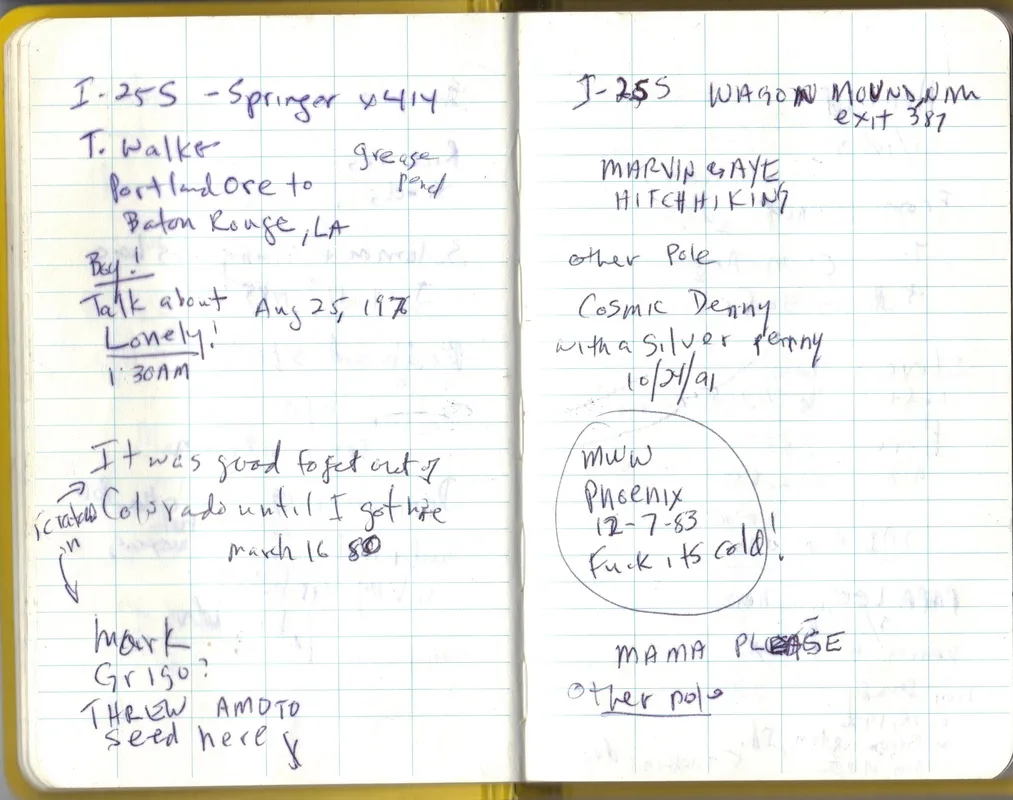 I-25S - Springer x414
T. Walker
grease
pencil
Portland Ore to
Baton Rouge, LA
Boy!
Talk about
Aug 25, 1976
Lonely!
1:30AM
It was good to get out of
Colorado until I got here
scratched
in
march 16 80
Mark
Grigo?
THREW AMOTO
seed here
I-25S WAGON MOUND, NM
exit 387
MARVIN GAYE
HITCHHIKING
other Pole
Cosmic Denny
with a Silver Penny
10/24/91
MWW
Phoenix
12-7-83
Fuck its cold!
MAMA PLEASE
Other pole